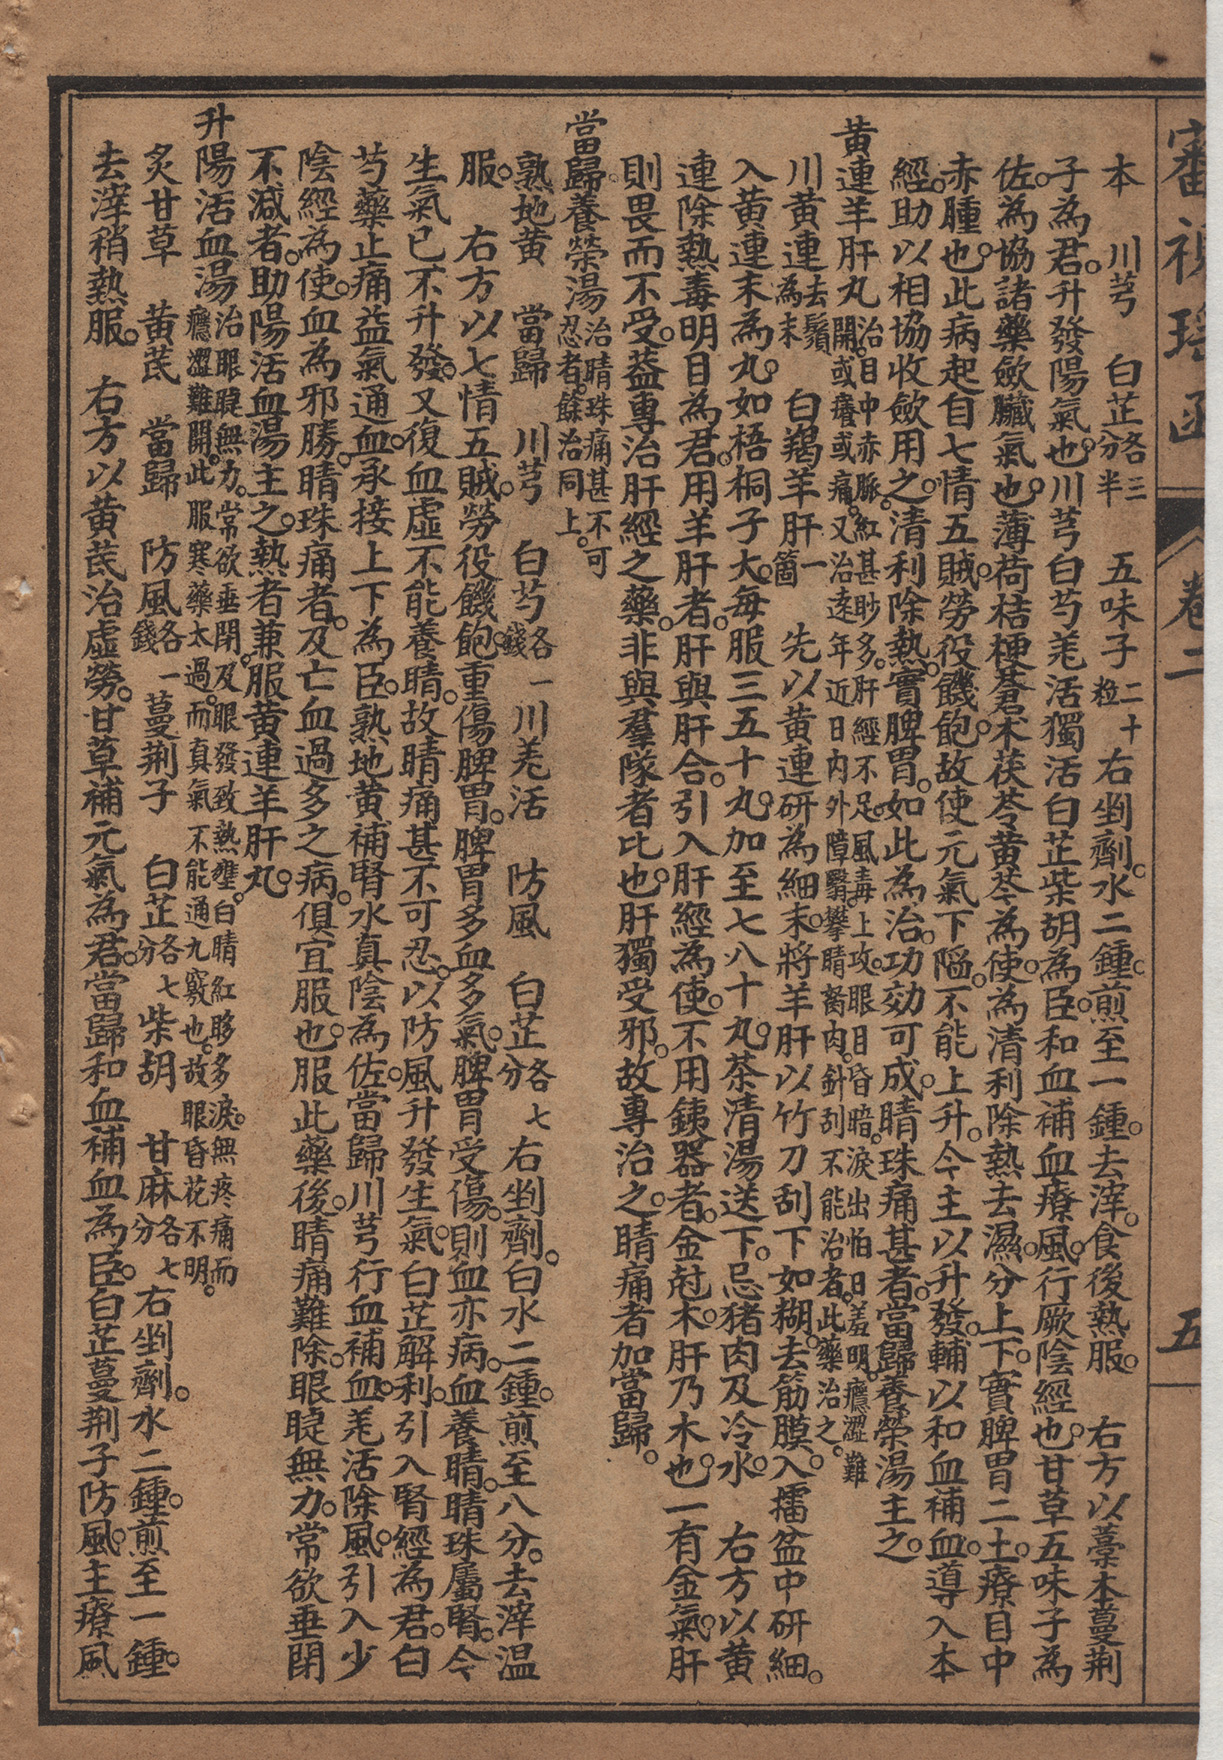 審視瑤函
卷二
五
本　川芎　白芷各三分半　五味子二十粒右剉劑。水二鍾。煎至一鍾。去滓。食後熱服。　右方以藁本蔓荆
子為君。升發陽氣也。川芎白芍羌活獨活白芷柴胡為臣。和血補血療風。行厥陰經也。甘草五味子為
佐。為協諸藥斂臟氣也。薄荷桔梗蒼朮茯苓黃芩為使。為清利除熱去濕。分上下。實脾胃二土。療目中
赤腫也。此病起自七情五賊。勞役饑飽。故使元氣下陷。不能上升。今主以升發。輔以和血補血。導入本
經。助以相協收斂用之。清利除熱。實脾胃。如此為治。功効可成。睛珠痛甚者。當歸養榮湯主之。
黃連羊肝丸治目中赤脈。紅甚眵多。肝經不足。風毒上攻。眼目昏暗。淚出怕日羞明。癮澀難
開。或癢或痛。又治遠年近日內外障翳。攀睛胬肉。針刮不能治者。此藥治之。
川黃連去鬚為末　白羯羊肝一箇　先以黃連研為細末。將羊肝以竹刀刮下如糊。去筋膜。入擂盆中研細。
入黃連末為丸。如梧桐子大。每服三五十丸。加至七八十丸。茶清湯送下。忌猪肉及冷水。　右方以黃
連除熱毒明目為君。用羊肝者。肝與肝合。引入肝經為使。不用鐵器者。金尅木。肝乃木也。一有金氣。肝
則畏而不受。蓋專治肝經之藥。非與羣隊者比也。肝獨受邪。故專治之。睛痛者加當歸。
當歸養榮湯治睛珠痛甚不可
忍者。餘治同上。
熟地黃　當歸　川芎　白芍各一錢　川羌活　防風　白芷各七分　右剉劑。白水二鍾。煎至八分。去滓溫
服。　右方以七情五賊。勞役饑飽。重傷脾胃。脾胃多血多氣。脾胃受傷。則血亦病。血養睛。睛珠屬腎。今
生氣已不升發。又復血虛不能養睛。故睛痛甚不可忍。以防風升發生氣。白芷解利。引入腎經為君。白
芍藥止痛益氣通血。承接上下為臣。熟地黃補腎水真陰為佐。當歸川芎行血補血。羌活除風。引入少
陰經為使。血為邪勝。睛珠痛者。及亡血過多之病。俱宜服也。服此藥後。睛痛難除。眼睫無力。常欲垂閉
不減者。助陽活血湯主之。熱者兼服黃連羊肝丸。
升陽活血湯治眼睫無力。常欲垂閉。及眼發致熱壅。白睛紅眵多淚。無疼痛而
癮澀難開。此服寒藥太過。而真氣不能通九竅也。故眼昏花不明。
炙甘草　黃芪　當歸　防風各一錢　蔓荆子　白芷各七分　柴胡　甘麻各七分　右剉劑。水二鍾。煎至一鍾。
去滓稍熱服。　右方以黃芪治虛勞。甘草補元氣為君。當歸和血補血為臣。白芷蔓荆子防風。主療風